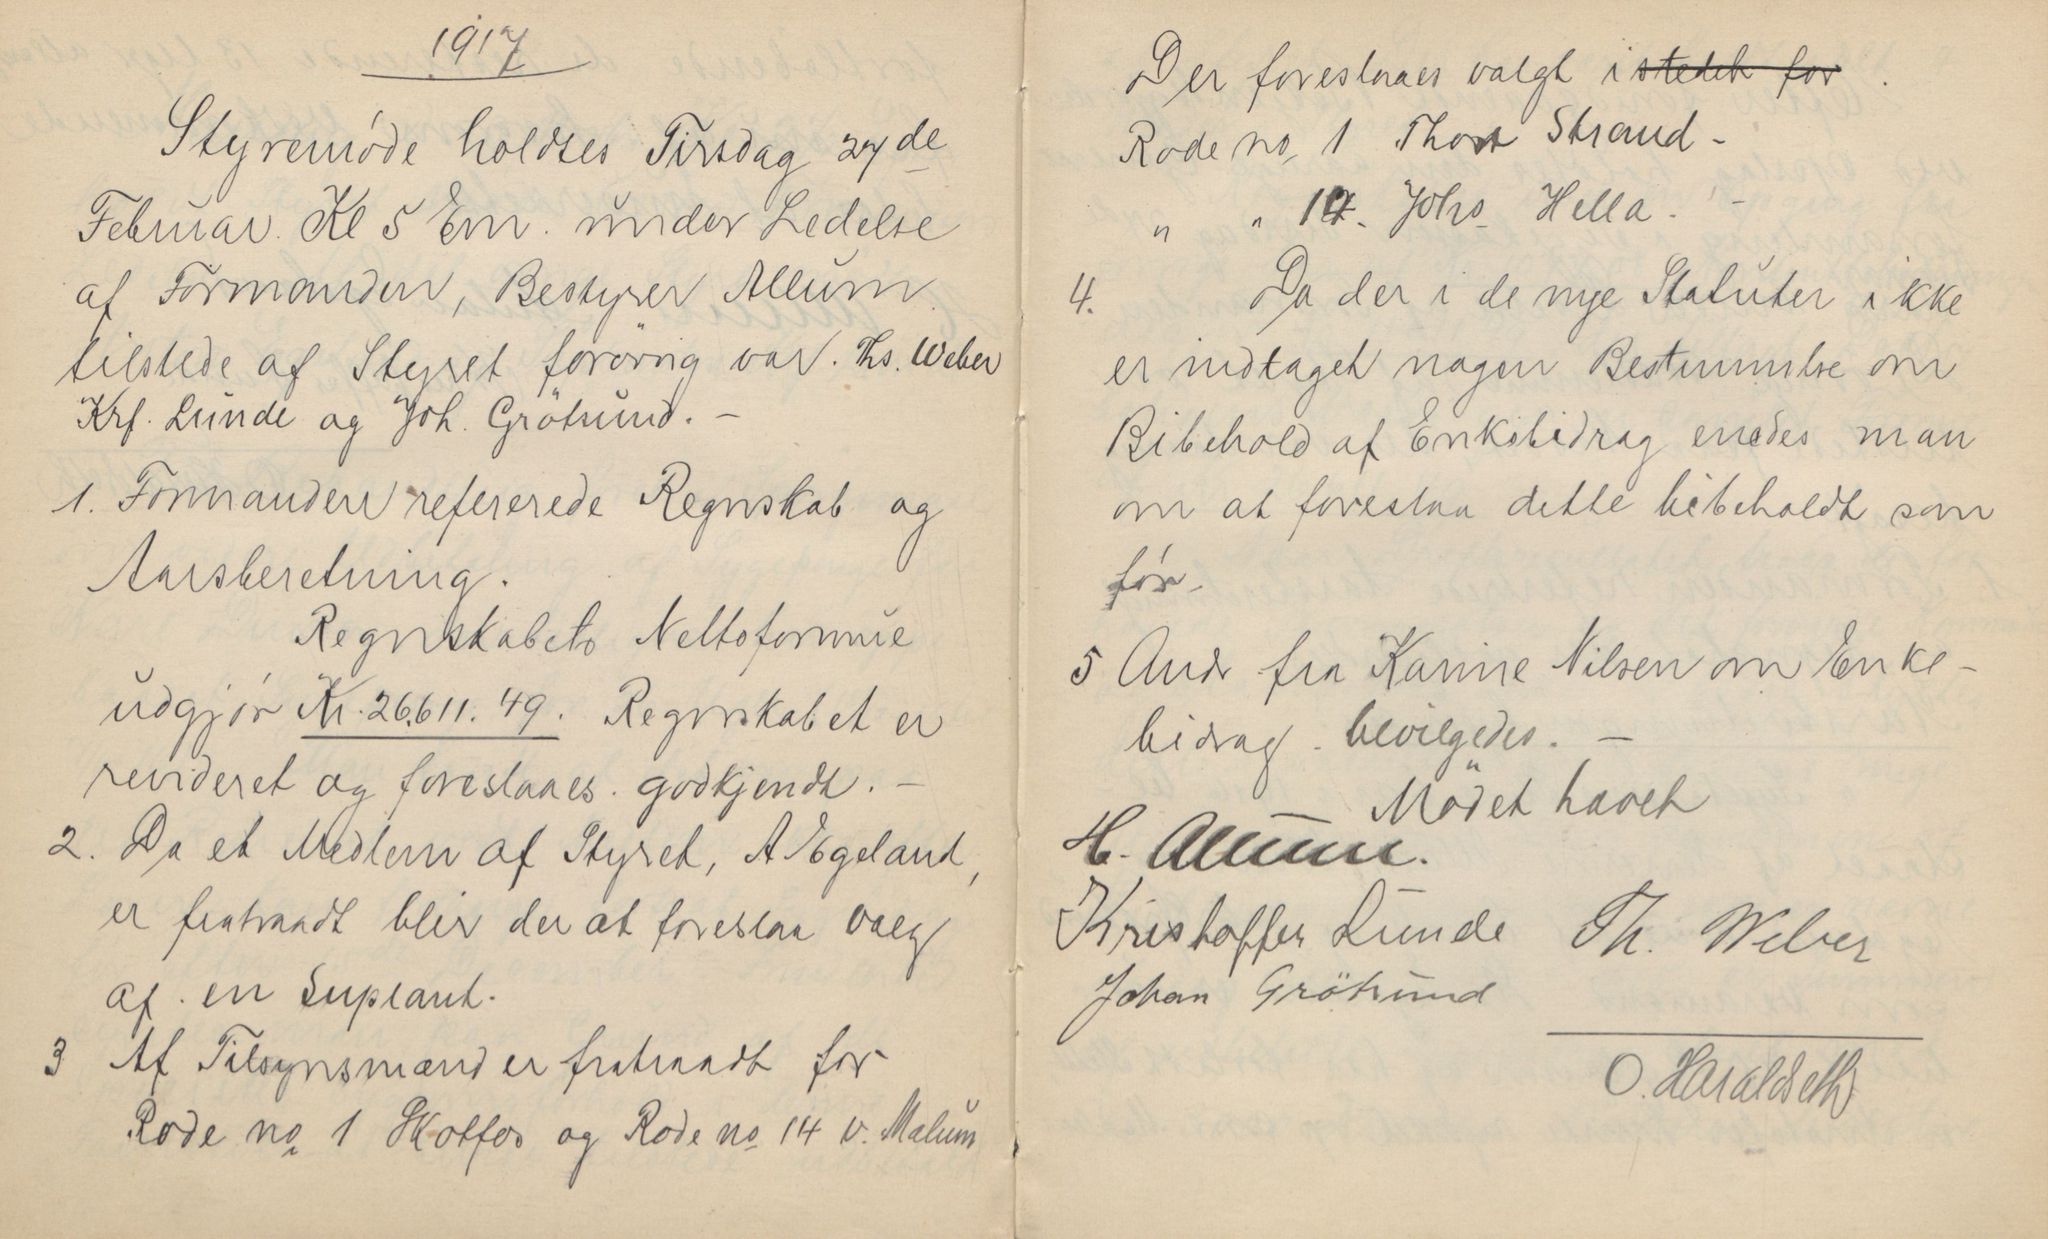 1917
Styremøde holdtes Tirsdag 27de
Februar. Kl 5 Em. under Ledelse
af Formanden, Bestyrer Allum
tilstede af Styret forövrig var. Ths. Weber
Krf. Lunde og Joh. Grötsund. –
1. Formanden refererede Regnskab og
Aarsberetning.
Regnskabets Nettoformue
udgjør Kr. 26.611.49. Regnskabet er
revideret og foreslaaes godkjendt. –
2. Da et Medlem af Styret, A Egeland,
er fratraadt blir der at foreslaa valg
af en Suplant.
3 Af Tilsynsmænd er fratraadt for
Rode no 1 Skotfos og Rode no 14 v. Mælum
Der foreslaaes valgt i stedet for
Rode no 1 Thor Strand –
" " 14. Johs Hella. –
4. Da der i de nye Statuter ikke
er indtaget nogen Bestemmelse om
Bibehold af Enkebidrag enedes man
om at foreslaa dette bibeholdt som
før.
5 Andr fra Karine Nilsen om Enke-
bidrag bevilgedes. –
Mödet hævet
H. Allum.
Kristoffer Lunde Th. Weber
Johan Grötsund
O. Haraldseth